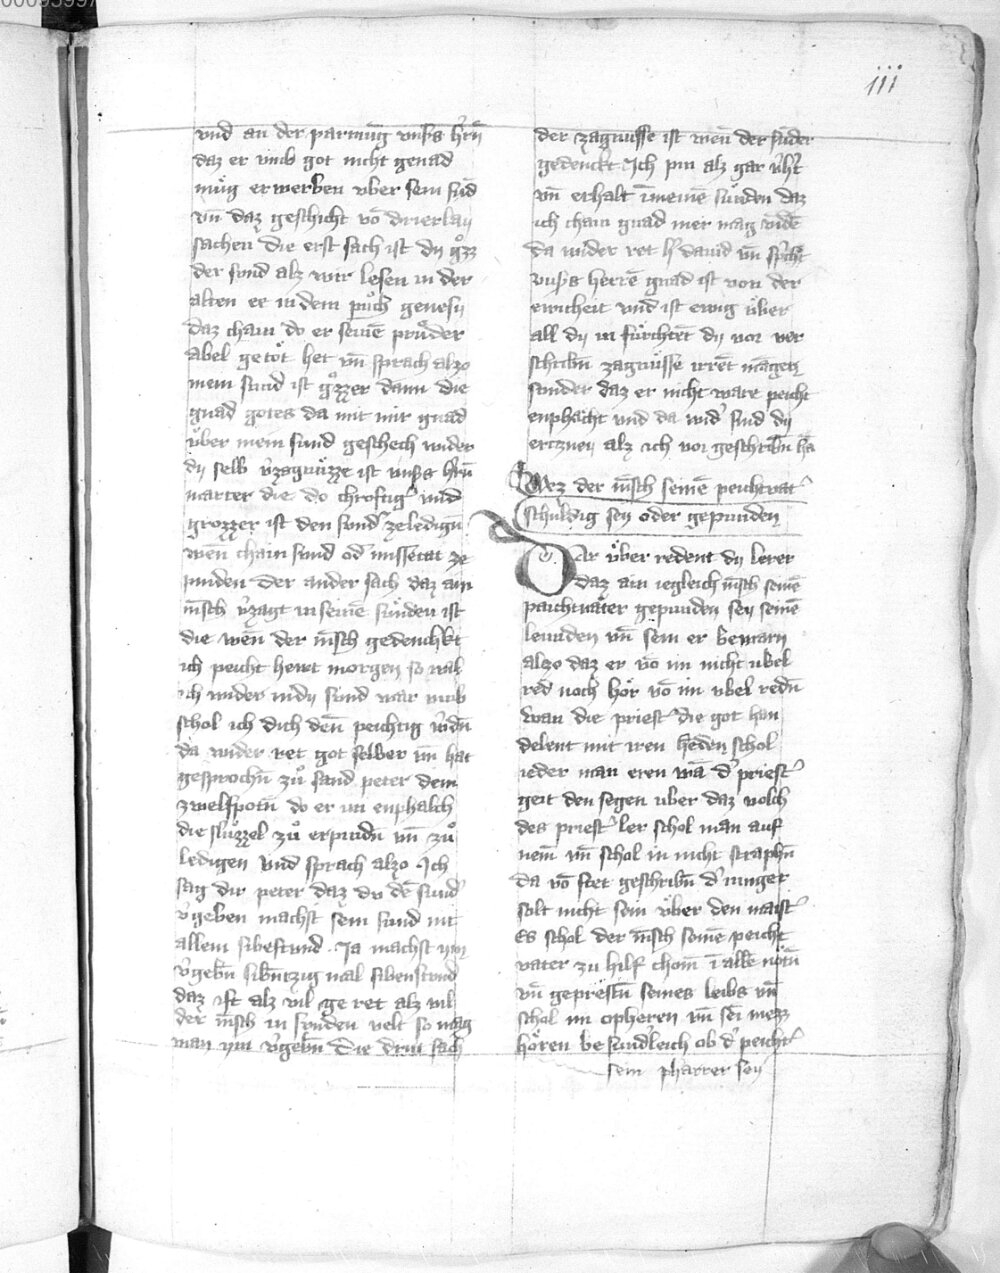 iii
vnd an der parmūg vnsˢs hˢrn̄
daz er vmb got nicht genad
müg erwerben vber sein sūd
vn̄ daz geschicht vō drierlay
sachen die erst sach ist dy gͦzz
der sund alz wir lesen in der
alten ee in dem pͧch genesy
daz chain do er seinē prͧder
abel getöt het vn̄ sprach alzo
mein sund ist gͦzzer dann die
gnad gotes da mit mir gnad
über mein sund geschech wider
dy selb vˢzagnüzze ist vnsˢs hˢrn̄
marter die do chreftigˢ vnd
grozzer ist den sundˢ ze ledign̄
wen̄ chain sund odˢ missetat ze
pinden Der ander sach daz ain
mēsch vˢzagt in seinē sünden ist
die wen̄ der mēsch gedenchkt
ich peicht hewt morgen so wil
ich wider in dy sund war vmb
schol ich dich den̄ peichtig wˢdn̄
da wider ret got selber vn̄ hat
gesprochn̄ zͧ sand peter dem
zwelfpotn̄ do er im enphalch
die slüzzel zͧ erpindn̄ vn̄ zͧ
ledigen vnd sprach alzo Ich
sag dir peter daz du dē sundˢ
vˢgeben machst sein sund mit
allem sibestund. Ja machst ym
vˢgebn̄ sibn̄tzig mal sibenstund
daz ist alz vil ge ret alz vil
der mēsch in sunden velt so mag
man ym vˢgebn̄ Die drin sach
der zagnusse ist wen̄ der sunder
gedenckt Ich pin alz gar vˢhˢt
vn̄ erhalt ī meinē sünden daz
ich chain gnad mer mag vindē
da wider ret hˢ dauid vn̄ spˢcht
vnsˢs herrē gnad ist von der
ewicheit vnd ist ewig über
all dy in fürchtēt dy vor ver
schribn̄ zagnüsse irrēt mangen
sunder daz er nicht ware peicht
enphächt vnd da widˢ sind dy
ertzney alz ich vor geschribn̄ ha
Wez der mēsch seinē peichtvatˢ
schuldig sey oder gepunden
Dar über redent dy lerer
daz ain iegleich mēsch seinē
peichtuäter gepunden sey seinē
leunden vn̄ sein er bewarn
alzo daz er vō im nicht vbel
red noch hör vō im vbel redn̄
wan die priestˢ die got han
delent mit iren henden schol
ieder man eren wā dˢ priestˢ
geit den segen vber daz volch
des priestˢ ler schol man auf
nem̄ vn̄ schol in nicht straphn̄
da vō stet geschribn̄ dˢ iunger
solt nicht sein über den maistˢ
Es schol der mēsch seinē peicht
vater zu hilf chom̄ ī allē nötn̄
vn̄ geprestn̄ seines leibs vn̄
schol im opheren vn̄ sei mezz
hören besundˢleich ob dˢ peichtˢ
sein pharrer sey